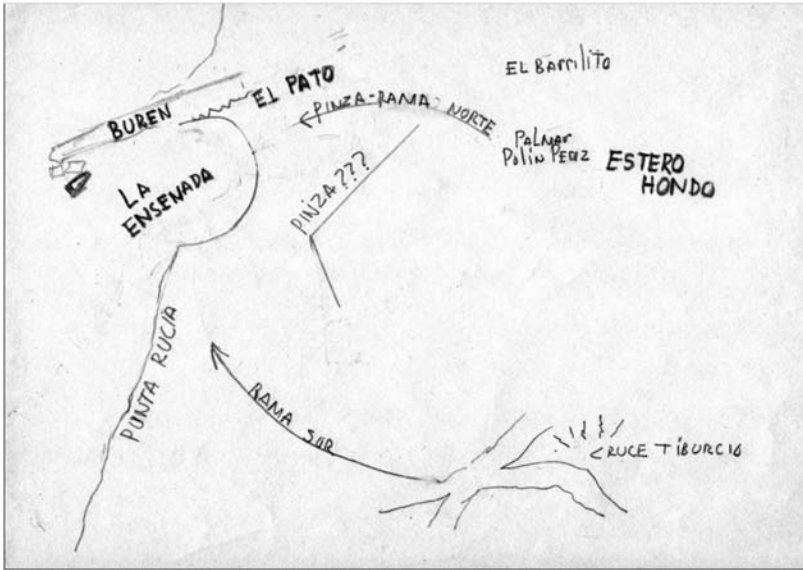 EL BArrilito
EL PATO
BUREN
PINZA-RAMA NORTE
PALMAr
Polin Perez
ESTERO
HONDO
LA
ENSENADA
PINZA ???
PUNTA RUCIA
RAMA SUR
CRUCE TIBURCIO